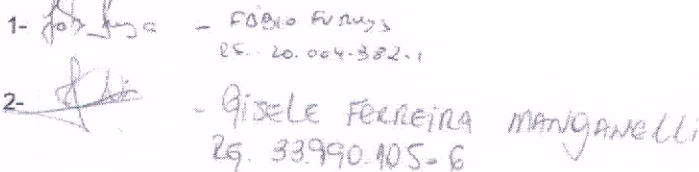 1- - FÁBIO FURUYA
RG. 20.004.382-1
2- - GISELE FERREIRA MANGANELLI
RG. 33.990.105-6